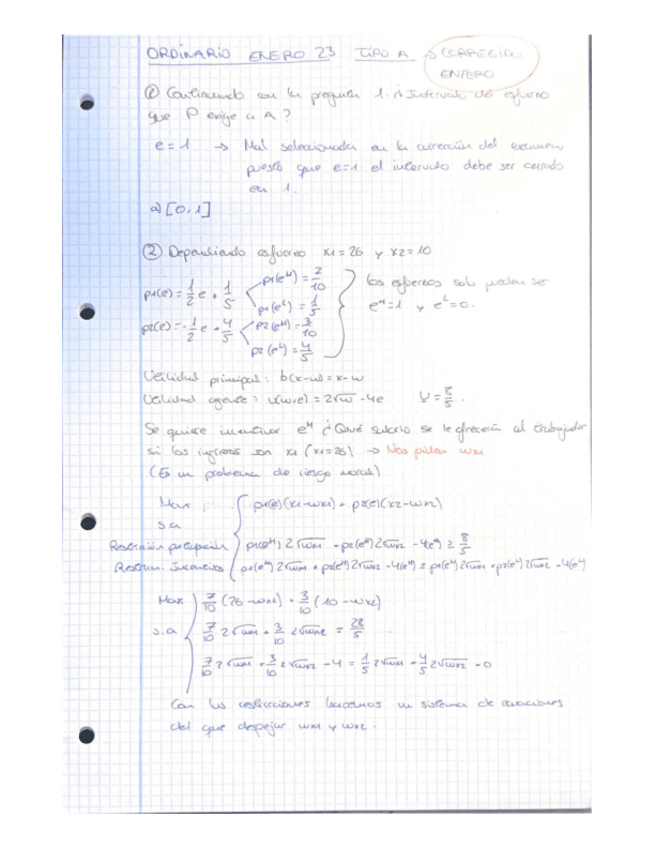 ORDINARIO ENERO 23 TIPO A → CORREGIDO
ENTERO
① Continuando con la pregunta 1. ¿Intervalo del esfuerzo
que P exige a A?
e=1 → Mal seleccionada en la corrección del examen,
puesto que e=1 el intervalo debe ser cerrado
en 1.
a) [0,1]
② Dependiendo esfuerzo x1=26 y x2=10
p1(e) = 1/2 e + 1/5
p1(e^H) = 7/10
p1(e^L) = 1/5
p2(e) = -1/2 e + 4/5
p2(e^H) = 3/10
p2(e^L) = 4/5
los esfuerzos solo pueden ser
e^H=1 y e^L=0.
Utilidad principal: b(x-w)=x-w
Utilidad agente: u(w,e)=2√w -4e U=8/5.
Se quiere incentivar e^H ¿Qué salario se le ofrecerá al trabajador
si los ingresos son x1 (x1=26) → Nos piden wx1
(Es un problema de riesgo moral)
Max p1(e)(x1-wx1) + p2(e)(x2-wx2)
s.a
Restricción participación p1(e^H) 2√wx1 + p2(e^H) 2√wx2 - 4e^H ≥ 8/5
Restricn. Incentivos p1(e^H) 2√wx1 + p2(e^H) 2√wx2 - 4(e^H) ≥ p1(e^L) 2√wx1 + p2(e^L) 2√wx2 - 4(e^L)
Max 7/10 (26-wx1) + 3/10 (10-wx2)
s.a 7/10 2√wx1 + 3/10 2√wx2 = 28/5
7/10 2√wx1 + 3/10 2√wx2 - 4 = 1/5 2√wx1 + 4/5 2√wx2 - 0
Con las restricciones hacemos un sistema de ecuaciones
del que despejar wx1 y wx2.